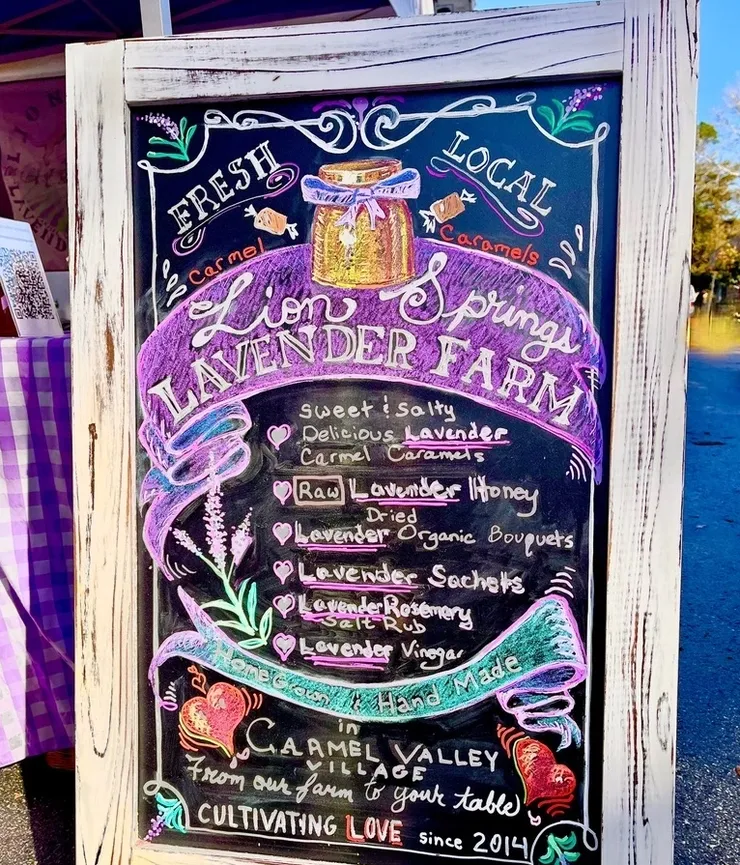 FRESH
LOCAL
Carmel
Caramels
Lion Springs
LAVENDER FARM
Sweet & Salty
Delicious Lavender
Carmel Caramels
Raw Lavender Honey
Dried
Lavender Organic Bouquets
Lavender Sachets
Lavender Rosemary
Salt Rub
Lavender Vinegar
Home Grown & Hand Made
in
CARMEL VALLEY
VILLAGE
From our farm to your table
CULTIVATING LOVE since 2014